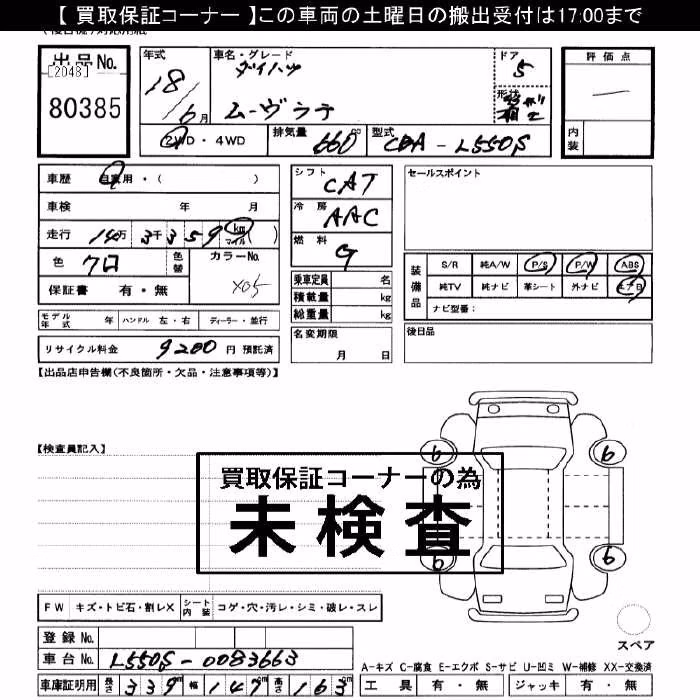 【 買取保証コーナー 】この車両の土曜日の搬出受付は17:00まで
出品No.
[2048]
80385
年式
18
6月
車名・グレード
ダイハツ
ムーヴラテ
ドア
5
形状
評価点
内装
2WD・4WD
排気量 660 cc
型式 CBA - L550S
車歴 自家用・( )
車検 年 月
走行 14万3千359 km マイル ( )
色 クロ 色替
カラーNo.
X05
保証書 有・無
シフト CAT
冷房 AAC
燃料 G
乗車定員 名
積載量 kg
総重量 kg
セールスポイント
装備品
S/R 純A/W P/S P/W ABS
純TV 純ナビ 革シート 外ナビ エアB
ナビ型番:
モデル年式 年 ハンドル 左・右 ディーラー・並行
名変期限
月 日
後日品
リサイクル料金 9200 円 預託済
【出品店申告欄(不良箇所・欠品・注意事項等)】
【検査員記入】
買取保証コーナーの為
未検査
6 6
6 6
FW キズ・トビ石・割レX シート内装 コゲ・穴・汚レ・シミ・破レ・スレ
登録No.
車台No. L550S-0083663
スペア
A-キズ C-腐食 E-エクボ S-サビ U-凹ミ W-補修 XX-交換済
車庫証明用 長さ 339 cm 幅 147 cm 高さ 163 cm
工具 有・無 ジャッキ 有・無